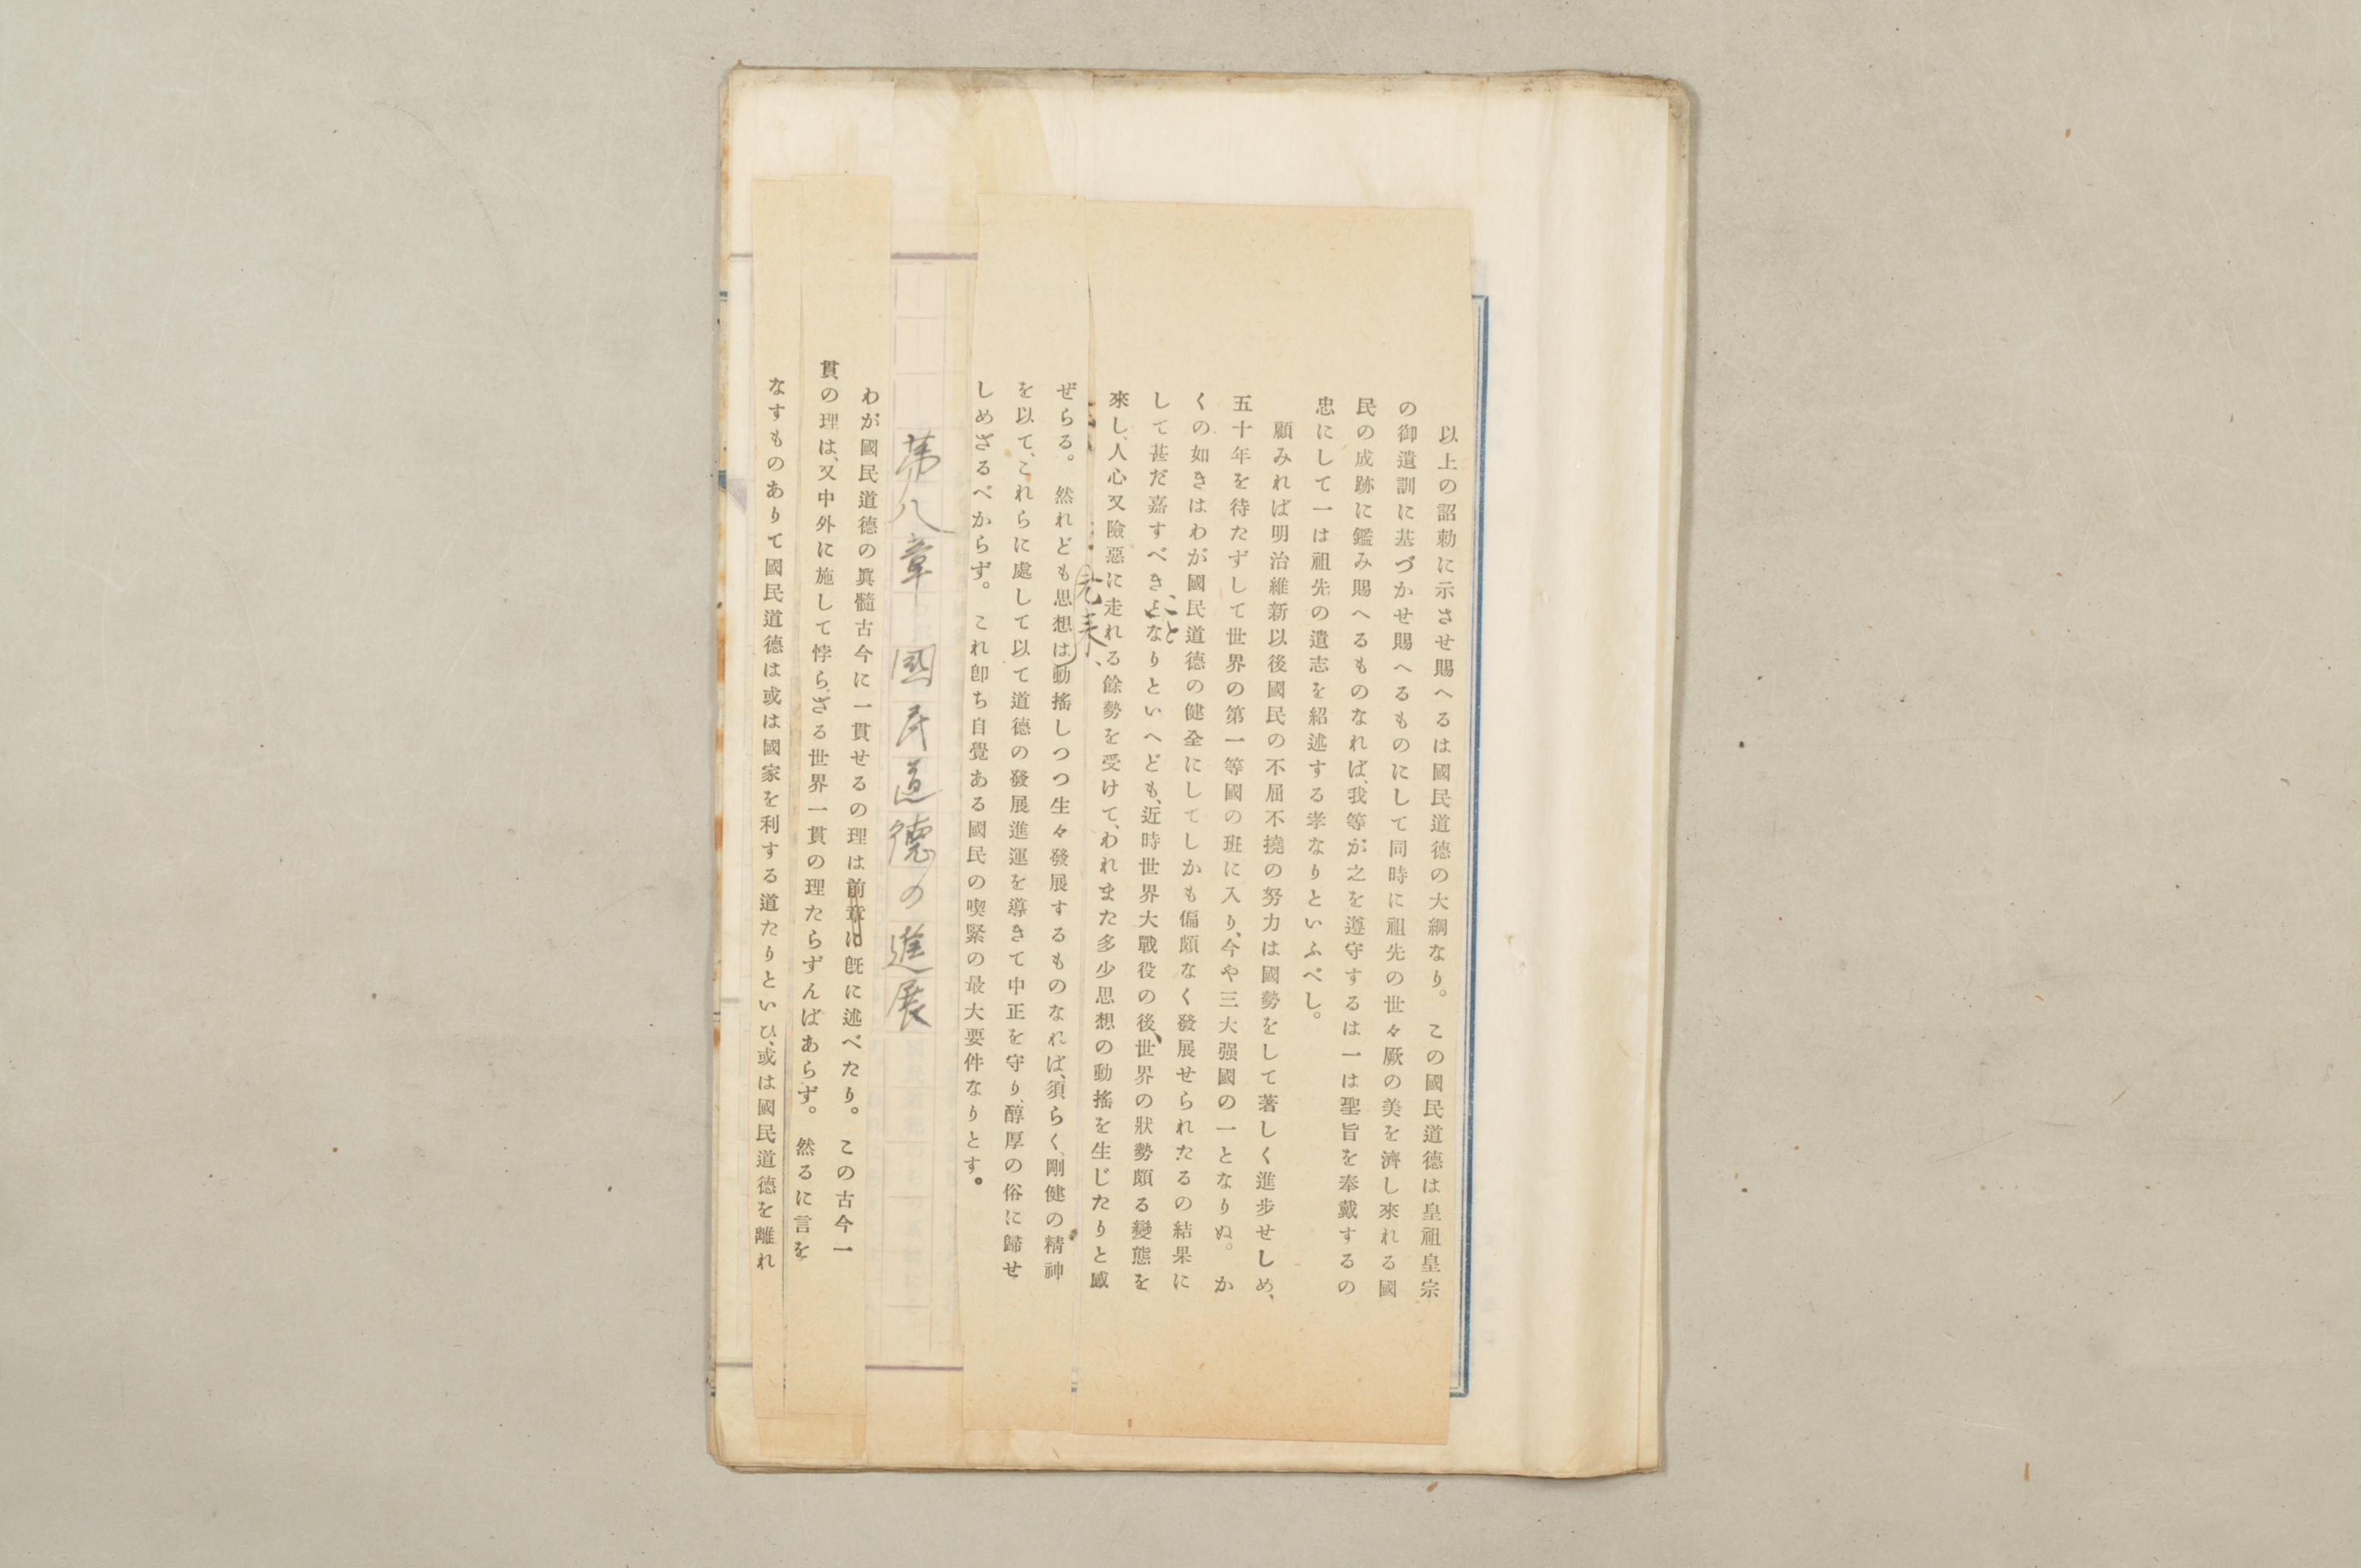 以上の詔勅に示させ賜へるは國民道德の大綱なり。この國民道德は皇祖皇宗
の御遺訓に基づかせ賜へるものにして同時に祖先の世々厥の美を濟し來れる國
民の成跡に鑑み賜へるものなれば、我等が之を遵守するは一は聖旨を奉戴するの
忠にして一は祖先の遺志を紹述する孝なりといふべし。
顧みれば明治維新以後國民の不屈不撓の努力は國勢をして著しく進步せしめ、
五十年を待たずして世界の第一等國の班に入り、今や三大强國の一となりぬ。か
くの如きはわが國民道德の健全にしてしかも偏頗なく發展せられたるの結果に
こと
して甚だ嘉すべきとなりといへども、近時世界大戰役の後、世界の狀勢頗る變態を
來し、人心又險惡に走れる餘勢を受けて、われまた多少思想の動搖を生じたりと感
元来、
ぜらる。然れども思想は動搖しつつ生々發展するものなれば、須らく剛健の精神
を以て、これらに處して以て道德の發展進運を導きて中正を守り、醇厚の俗に歸せ
しめざるべからず。これ卽ち自覺ある國民の喫緊の最大要件なりとす。
第八章 國民道德の進展
わが國民道德の眞髓古今に一貫せるの理は前章に旣に述べたり。この古今一
貫の理は、又中外に施して悖らざる世界一貫の理たらずんばあらず。然るに言を
なすものありて國民道德は或は國家を利する道たりといひ、或は國民道德を離れ